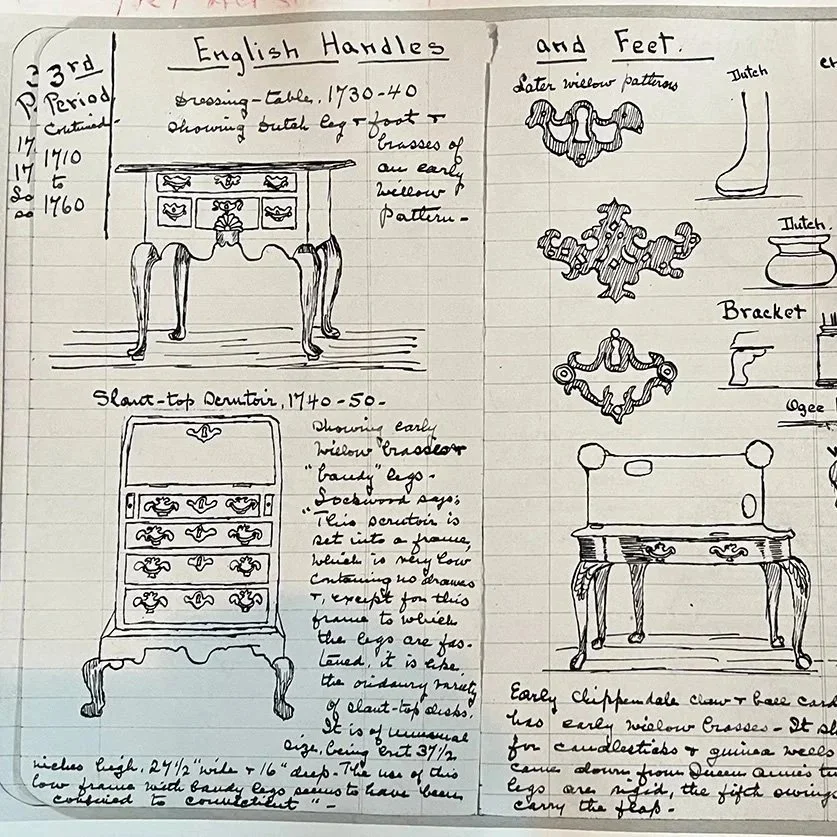 English Handles and Feet.
3rd
Period
Continued-
1710
to
1760
Dressing-table, 1730-40
showing Dutch leg + foot +
brasses of
an early
willow
pattern-
Slant-top Scrutoir, 1740-50-
showing early
willow brasses +
"bandy" legs-
Lockwood says:
"This scrutoir is
set into a frame,
which is very low
containing no drawers
+, except for this
frame to which
the legs are fas-
tened, it is like
the ordinary variety
of slant-top desks.
It is of unusual
size, being but 37 1/2
inches high, 27 1/2" wide + 16" deep- The use of this
low frame with bandy legs seems to have been
confined to Connecticut"-
Later willow patterns
Dutch
Dutch.
Bracket
Ogee
Early Chippendale claw + ball card
has early willow brasses- It
for candlesticks + guinea wells
come down from Queen Anne's
legs are rigid, the fifth swings
carry the flap-